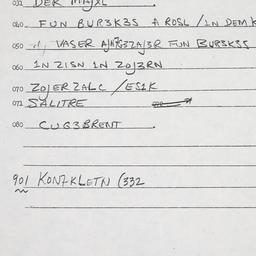 031 DER MAJXL
040 FUN BUR3K3S A ROSL / IN DEM K
050 VASER FUN BUR3K3S
060 IN ZISN IN ZOJ3RN
070 ZOJERZALC / ESIK
071 SALITRE
080 CUG3BRENT.
901 KONZKLETN (332